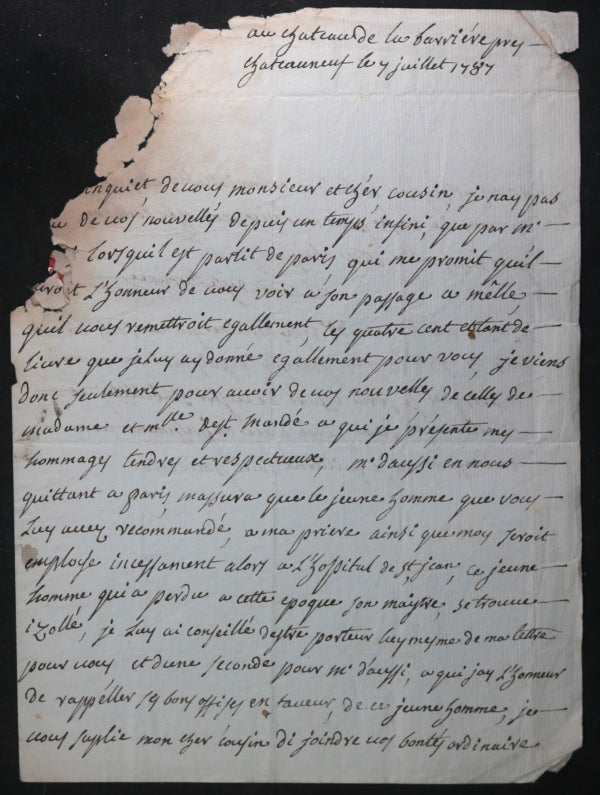 au chateau de la barriére pres
chateauneuf le 7 juillet 1787
inquiet, de vous monsieur et chér cousin, je nay pas
de vos nouvellés depuis un temps infini, que par mr
lorsquil est partit de paris, qui me promit qu'il
auroit L'honneur de vous voir a son passage a mêlle
quil vous remettroit egallement, les quatre cent et tant de
livre que je luy ay donné egallement pour vous, je viens
donc seulement pour avoir de vos nouvelles de celles de
madame et mlle dest mandé a qui je présente mes
hommages tendres et respectueux, mr daussi en nous
quittant a paris massura que le jeune homme que vous
Luy avez recommandé, a ma priere ainsi que moy seroit
employe incessament alors a L'hospital de st jean, ce jeune
homme qui a perdu a cette epoque son maÿtre, se trouve
izollé, je Luy ai conseillé destre porteur luy mesme de ma lettre
pour vous et dune seconde pour mr daussi, a qui jay L'honneur
de rappéller ses bons offises en faveur, de ce jeune homme, je
vous suplie mon cher cousin di joindre vos bontés ordinaire